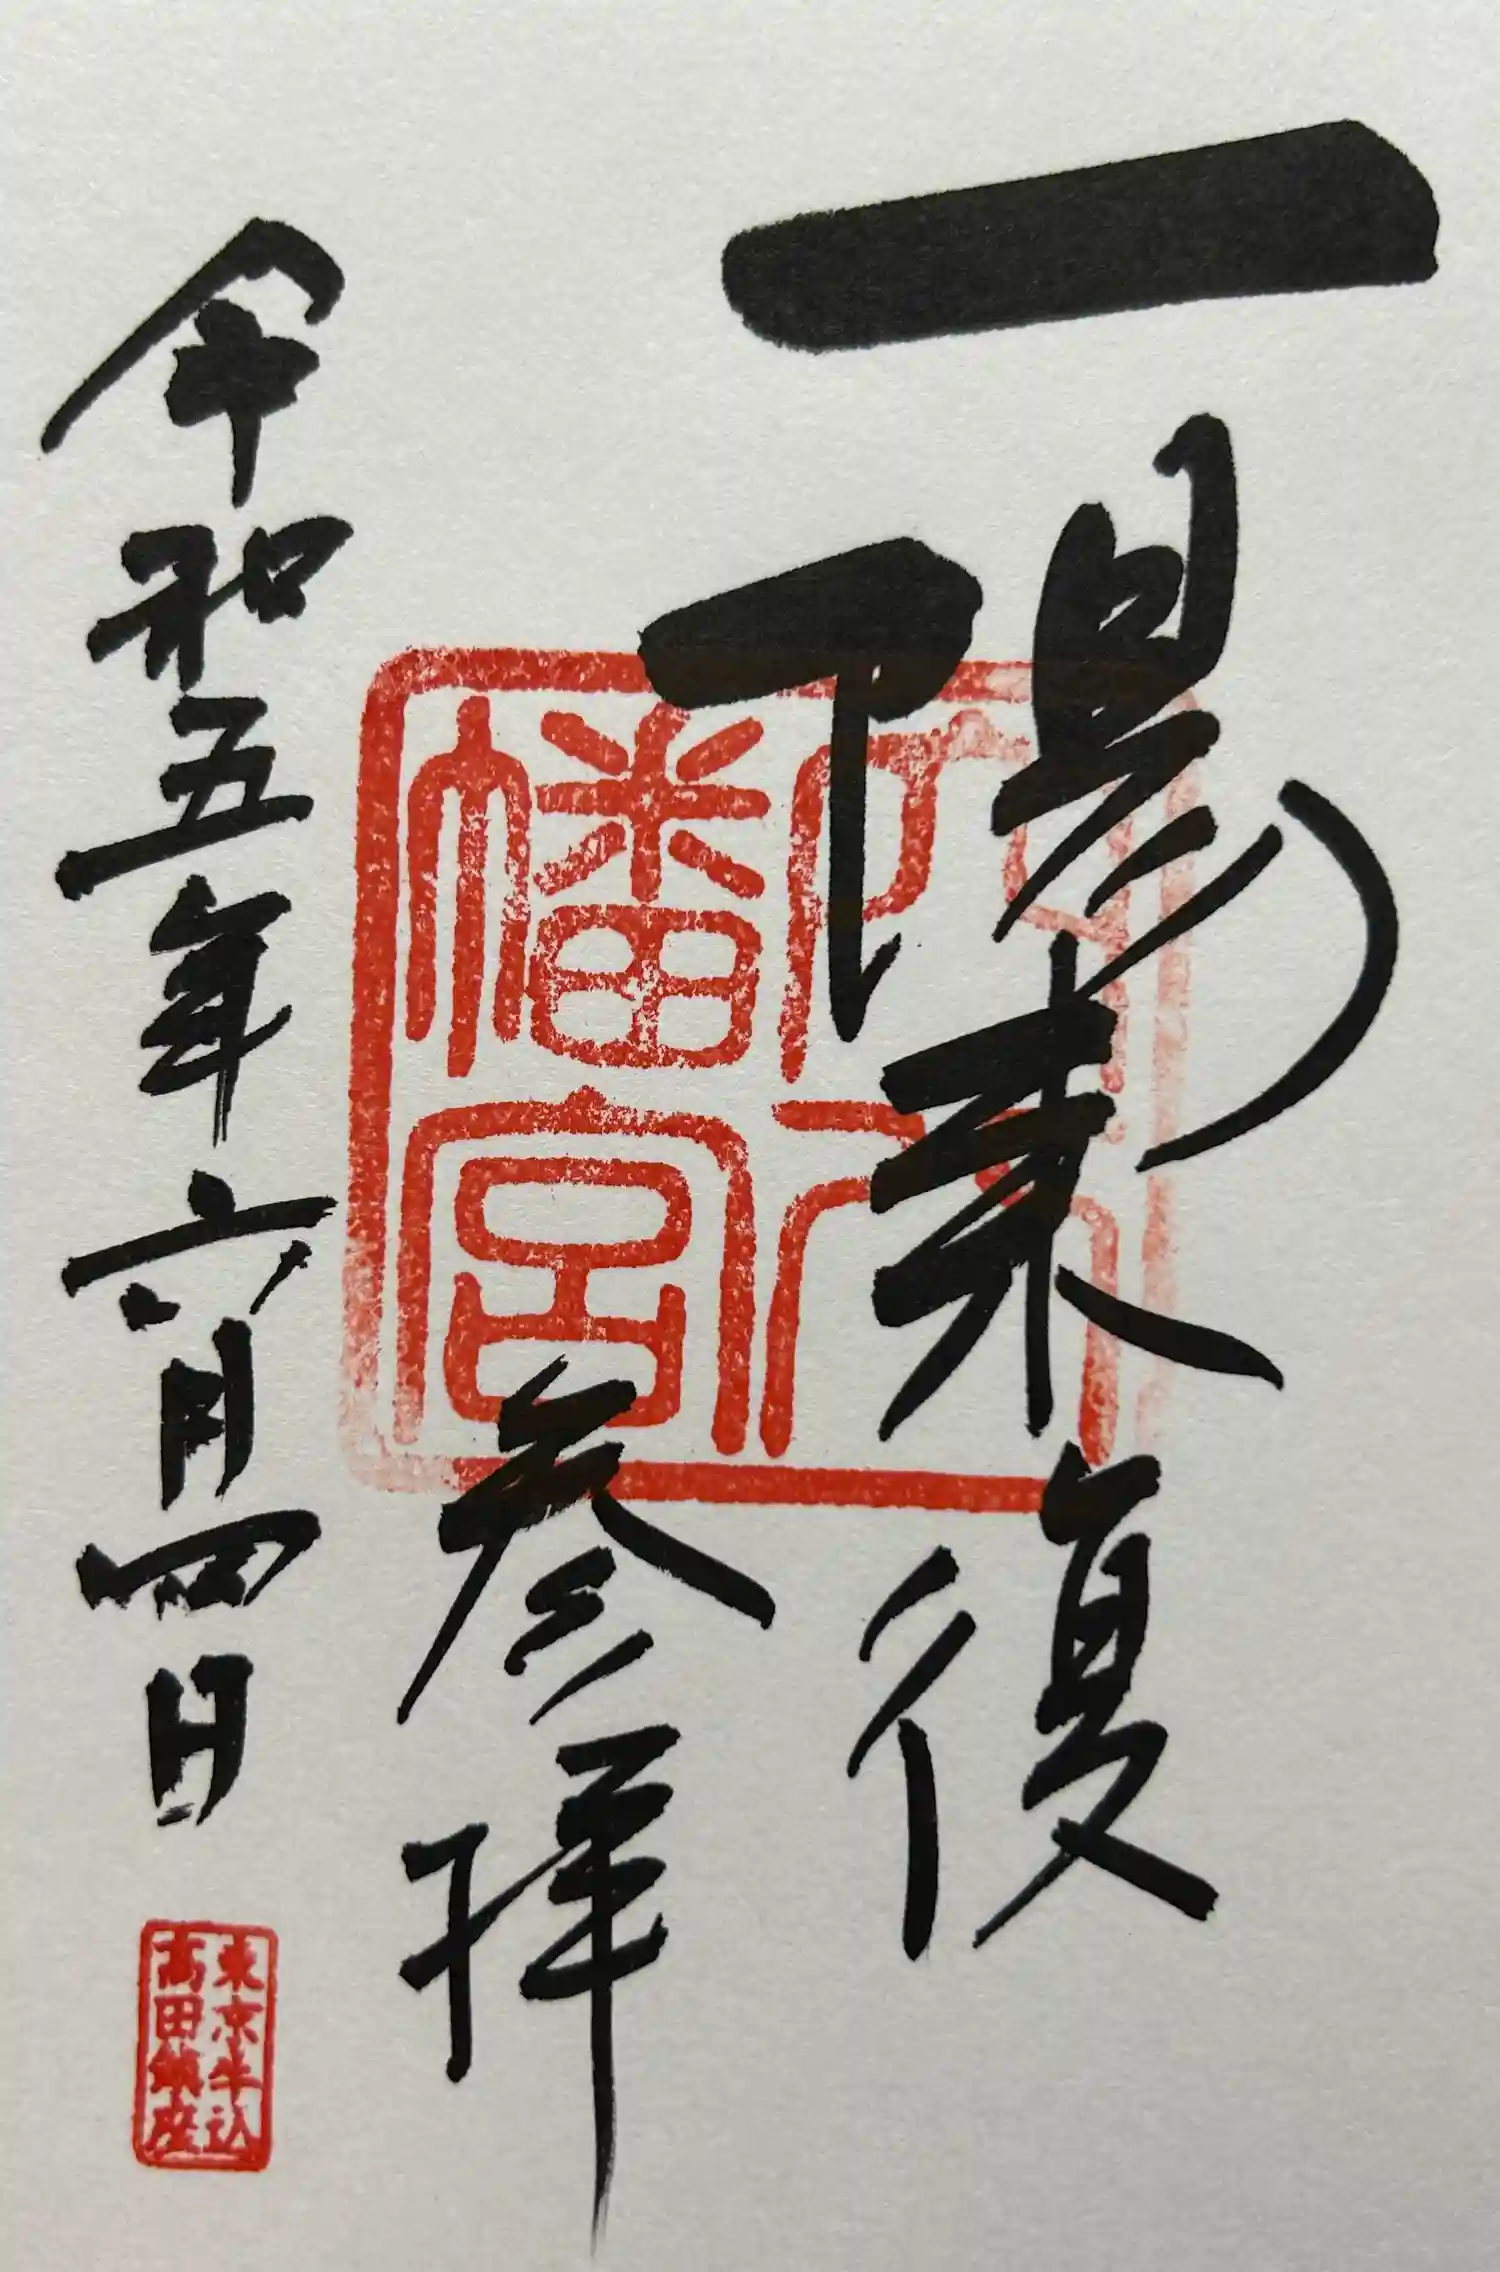 一陽来復
参拝
令和五年六月四日
穴八
幡宮
東京牛込
高田鎮座